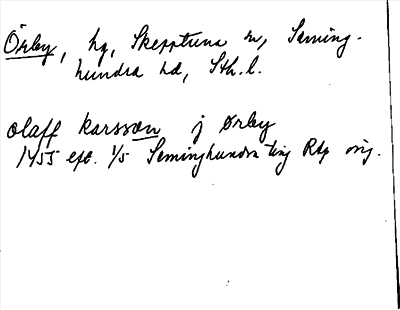 Örby, hg, Skepptuna sn, Seming-
hundra hd, Sth.l.
olaff karsson j Ørby
1455 eft. 1/5 Seminghundra ting Rap orig.